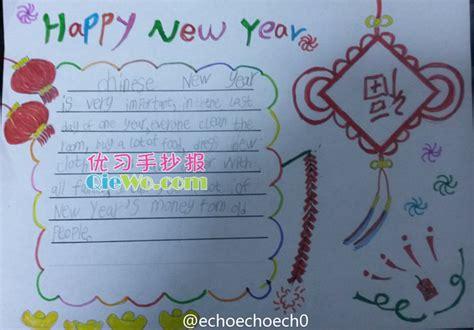 HAPPY NEW YEAR
chinese New Year
is very important, in the last
day of one year, everyone clean the
room, buy a lot of food, dress new
福
优习手抄报
QieWo.com
clot with
all of
New Year's money form old
People.
@echoechoech0